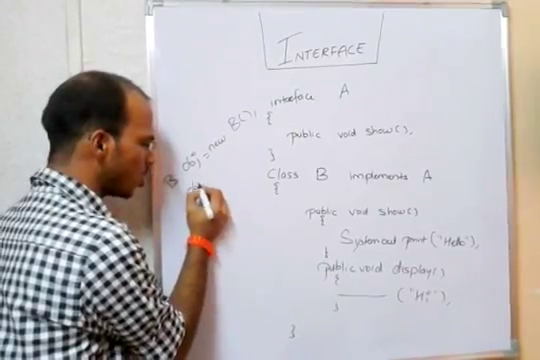 INTERFACE
interface A
{
public void show();
}
Class B implements A
{
public void show()
{
System.out.print("Hello");
}
public void display()
{
("Hi");
}
}
B obj = new B();